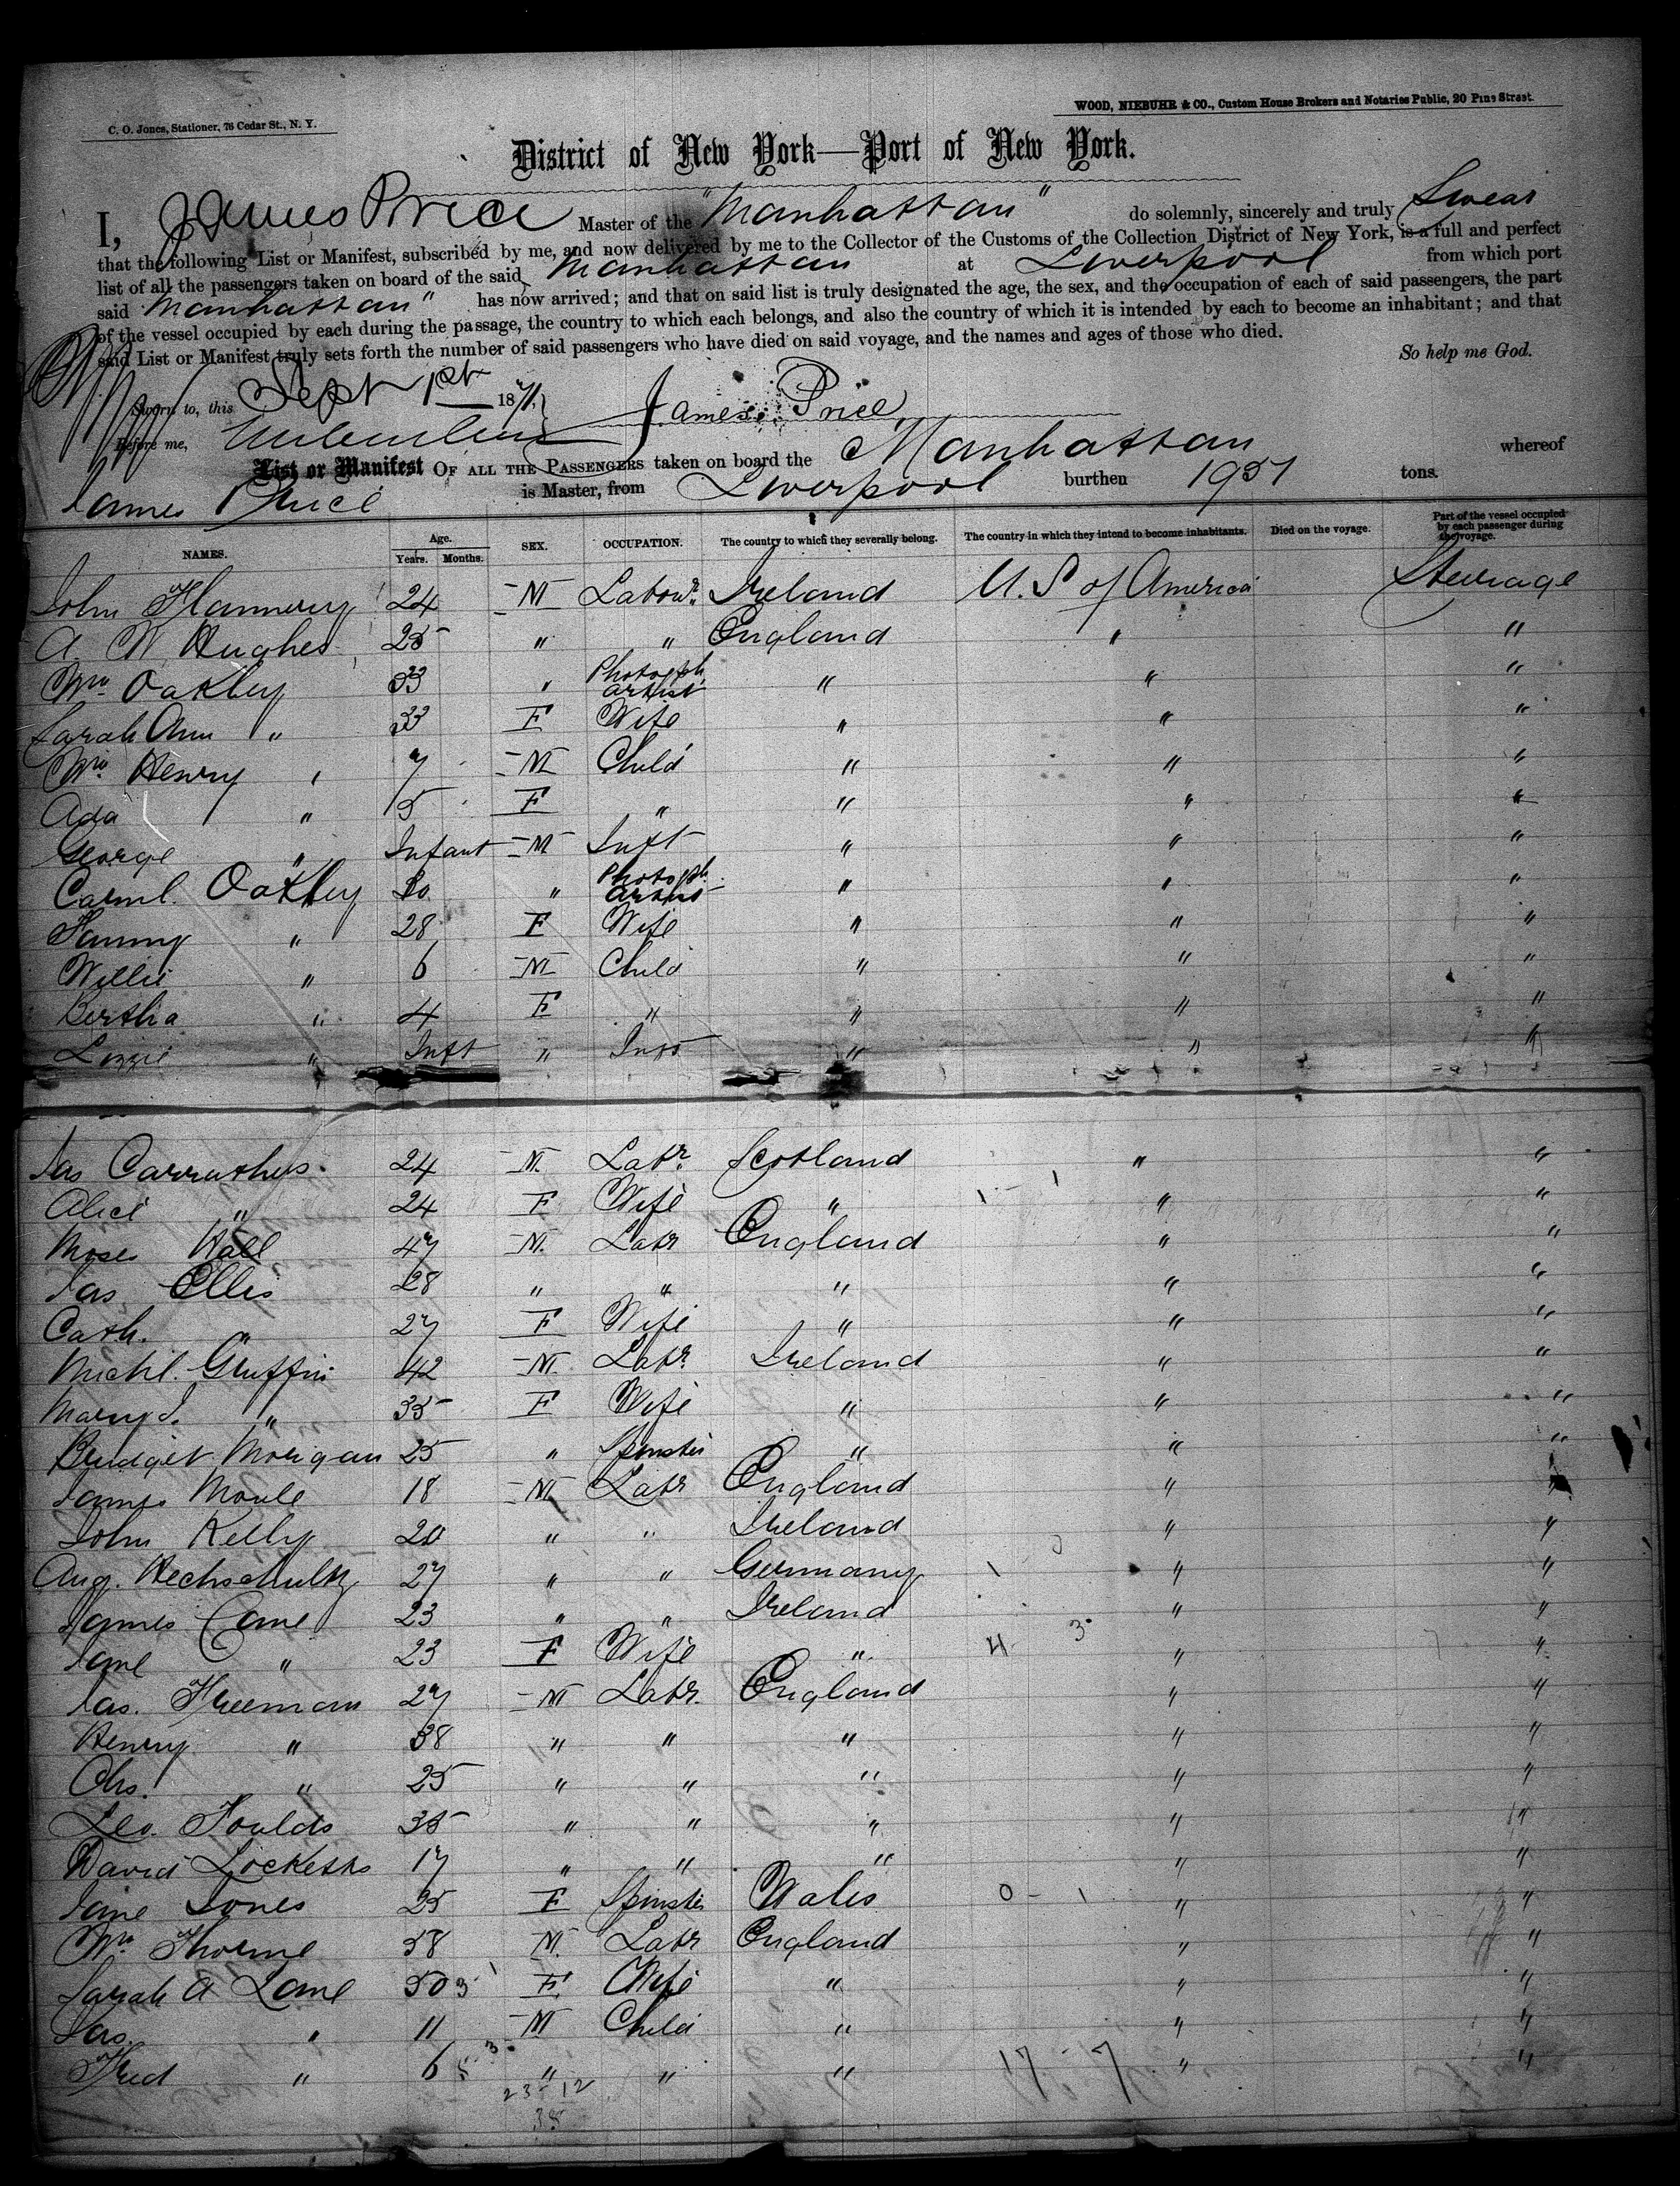 WOOD, NIEBUHR & CO., Custom House Brokers and Notaries Public, 20 Pine Street.
C. O. Jones, Stationer, 76 Cedar St., N. Y.
District of New York—Port of New York.
I, James Price Master of the "Manhattan" do solemnly, sincerely and truly Swear
that the following List or Manifest, subscribed by me, and now delivered by me to the Collector of the Customs of the Collection District of New York, is a full and perfect
list of all the passengers taken on board of the said Manhattan at Liverpool from which port
said Manhattan" has now arrived; and that on said list is truly designated the age, the sex, and the occupation of each of said passengers, the part
of the vessel occupied by each during the passage, the country to which each belongs, and also the country of which it is intended by each to become an inhabitant; and that
said List or Manifest truly sets forth the number of said passengers who have died on said voyage, and the names and ages of those who died.
So help me God.
Sworn to, this Sept 1st 1871, James Price
Before me,
List or Manifest OF ALL THE PASSENGERS taken on board the Manhattan whereof
James Price is Master, from Liverpool burthen tons.
NAMES. Age. Years. Months. SEX. OCCUPATION. The country to which they severally belong. The country in which they intend to become inhabitants. Died on the voyage. Part of the vessel occupied by each passenger during the voyage.
John Flannery 24 M Labour. Ireland U.S of America Steerage
A W Hughes 25 " " England " "
Wm Oakley 33 " Photogph. artist " " "
Sarah Ann " 33 F Wife " " "
Wm Henry " 7 M Child " " "
Ada " 5 F " " " "
George " Infant M Inft " " "
Oakley " Photogph. artist " " "
Fanny " 28 F Wife " " "
Willie " 6 M Child " " "
Bertha " 4 F " " " "
Lizzie " Inft " Inft " " "
Jas Carruthers 24 M. Labr. Scotland " "
Alice " 24 F Wife " " "
Moses Hall 47 M. Labr England " "
Jas Ellis 28 " " " " "
Cath. " 27 F Wife " " "
Michl. Griffin 42 M. Labr. Ireland " "
Mary J. " 35 F Wife " " "
Bridget Morigan 25 " Spinster " " "
James Moule 18 M Labr England " "
John Kelly 20 " " Ireland " "
Aug. Hechschultz 27 " " Germany " "
James Cane 23 " " Ireland " "
Jane " 23 F Wife " " "
Jas. Freeman 27 M Labr. England " "
Henry " 38 " " " " "
Chs. " 25 " " " " "
Foulds 35 " " " " "
David Locketts 17 " " " " "
Jane Jones 25 F Spinster Wales " "
Wm Thorne 58 M. Labr England " "
Sarah A Lane 50 F. Wife " " "
Jas. " 11 M Child " " "
Fred " 6 " " " 17 - 7 " "
23-12